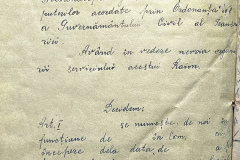 puterilor acordate prin Ordonanța
a Guvernământului Civil al Trans
riei
Având in vedere nevoia
rii serviciului acestui Raion.
Decidem:
Art. I se numesc de noi in
funcțiune de in com.
incepere dela data de a